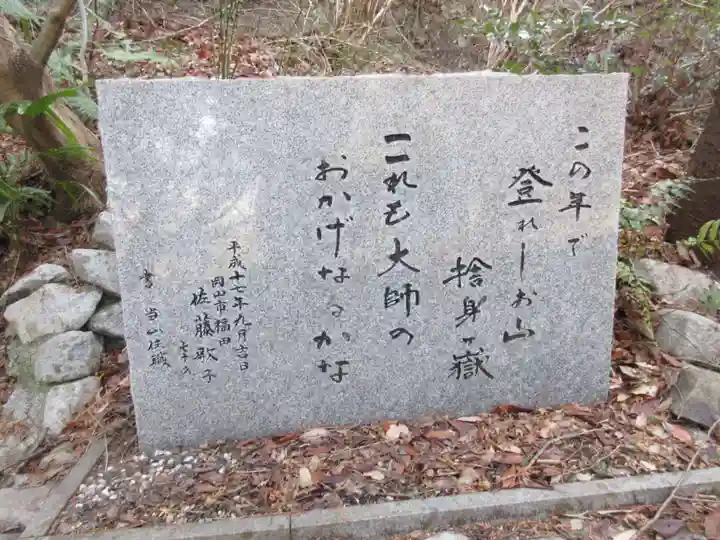 この年で
登れしお山
捨身ヶ嶽
これも大師の
おかげなるかな
平成十七年九月吉日
岡山市福田
佐藤歌子
七十六
書 当山住職